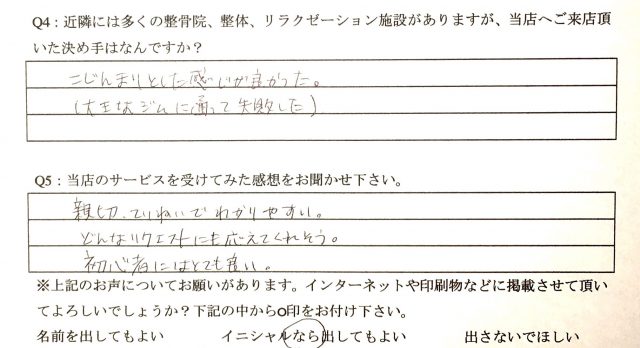 Q4：近隣には多くの整骨院、整体、リラクゼーション施設がありますが、当店へご来店頂
いた決め手はなんですか？
こじんまりとした感じが良かった。
(大きなジムに通って失敗した)
Q5：当店のサービスを受けてみた感想をお聞かせ下さい。
親切、ていねいでわかりやすい。
どんなリクエストにも応えてくれそう。
初心者にはとても良い。
※上記のお声についてお願いがあります。インターネットや印刷物などに掲載させて頂い
てよろしいでしょうか？下記の中から○印をお付け下さい。
名前を出してもよい　イニシャルなら出してもよい　出さないでほしい